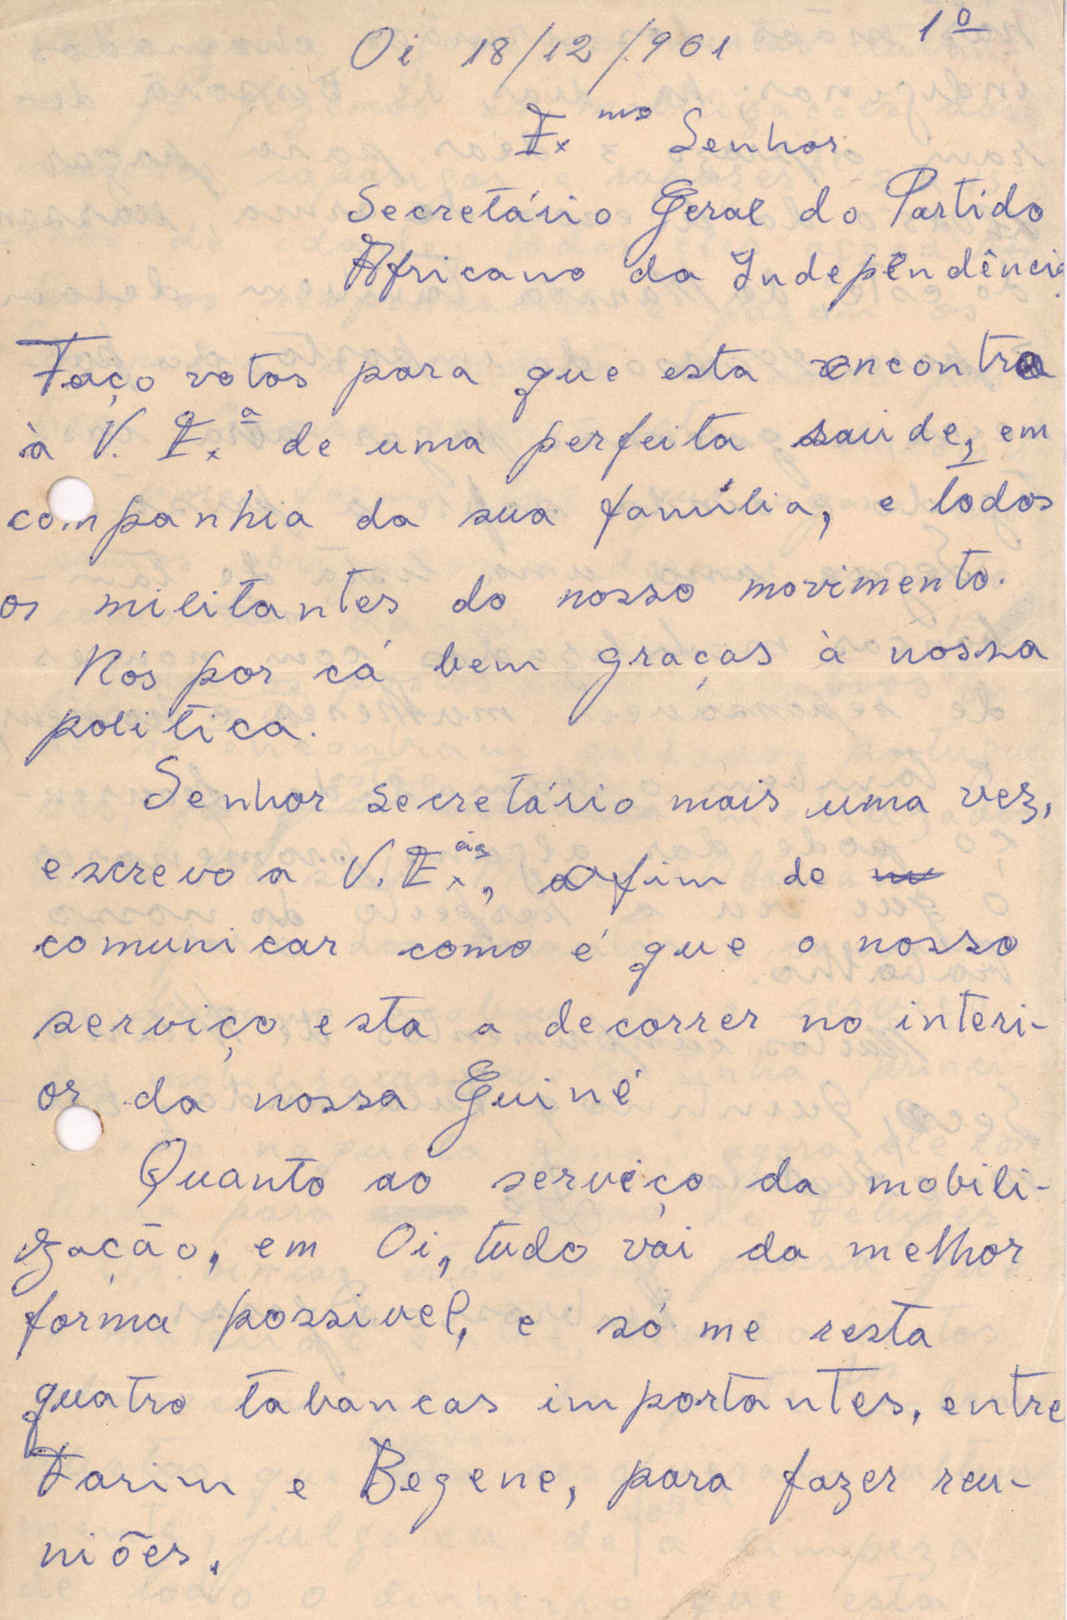 1º
Oi 18/12/.961
Ex.mo Senhor
Secretário Geral do Partido
Africano da Independência
Faço votos para que esta encontra
à V. Ex.ª de uma perfeita saúde, em
companhia da sua família, e todos
os militantes do nosso movimento.
Nós por cá bem graças à nossa
politica.
Senhor secretário mais uma vez,
escrevo a V. Ex. cia, afim de
comunicar como é que o nosso
serviço esta a decorrer no interi-
or da nossa Guiné
Quanto ao serviço da mobili-
zação, em Oi, tudo vai da melhor
forma possivel, e só me resta
quatro tabancas importantes, entre
Farim e Begene, para fazer reu-
niões.